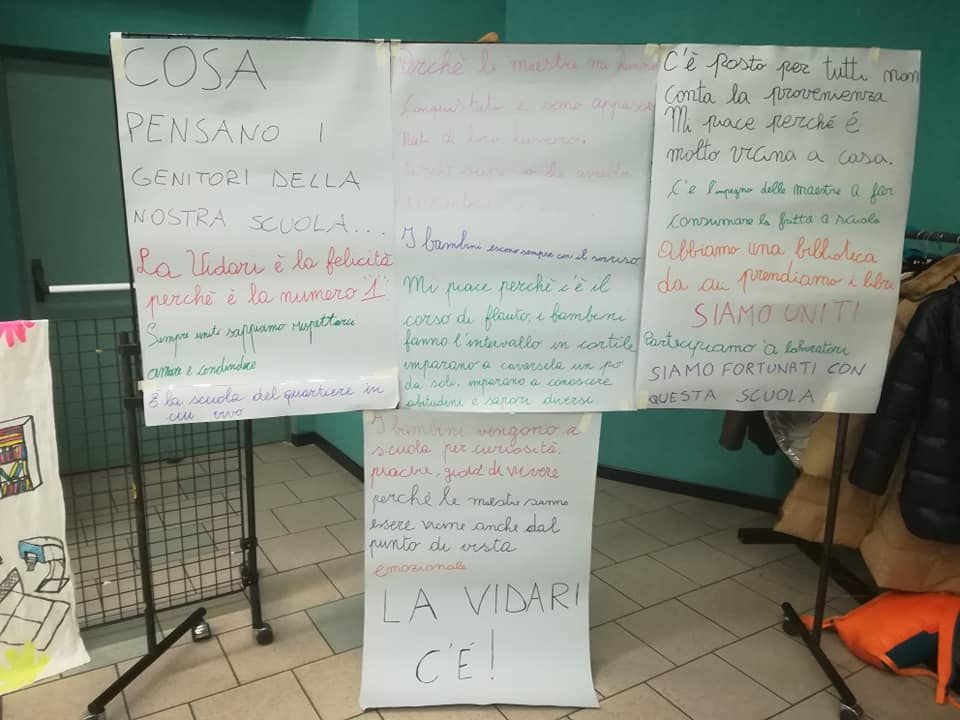 COSA
PENSANO I
GENITORI DELLA
NOSTRA SCUOLA...
La Vidari è la felicità
perchè è la numero 1
Sempre uniti sappiamo rispettarci
amare e condividere
È la scuola del quartiere in
cui vivo
Perchè le maestre mi hanno
Conquistato e sono appassio
nate di loro lavoro.
I bambini escono sempre con il sorriso
Mi piace perchè c'è il
corso di flauto, i bambini
fanno l'intervallo in cortile
imparano a cavarsela un po'
da soli, imparano a conoscere
abitudini e sapori diversi
C'è posto per tutti non
Conta la provenienza
Mi piace perché é
molto vicina a casa.
C'è l'impegno delle maestre a far
consumare la frutta a scuola
Abbiamo una biblioteca
da cui prendiamo i libri
SIAMO UNITI
Partecipiamo a laboratori
SIAMO FORTUNATI CON
QUESTA SCUOLA
I bambini vengono a
scuola per curiosità,
piacere, gioia di vivere
perchè le maestre sanno
essere vicine anche dal
punto di vista
emozionale
LA VIDARI
C'É!